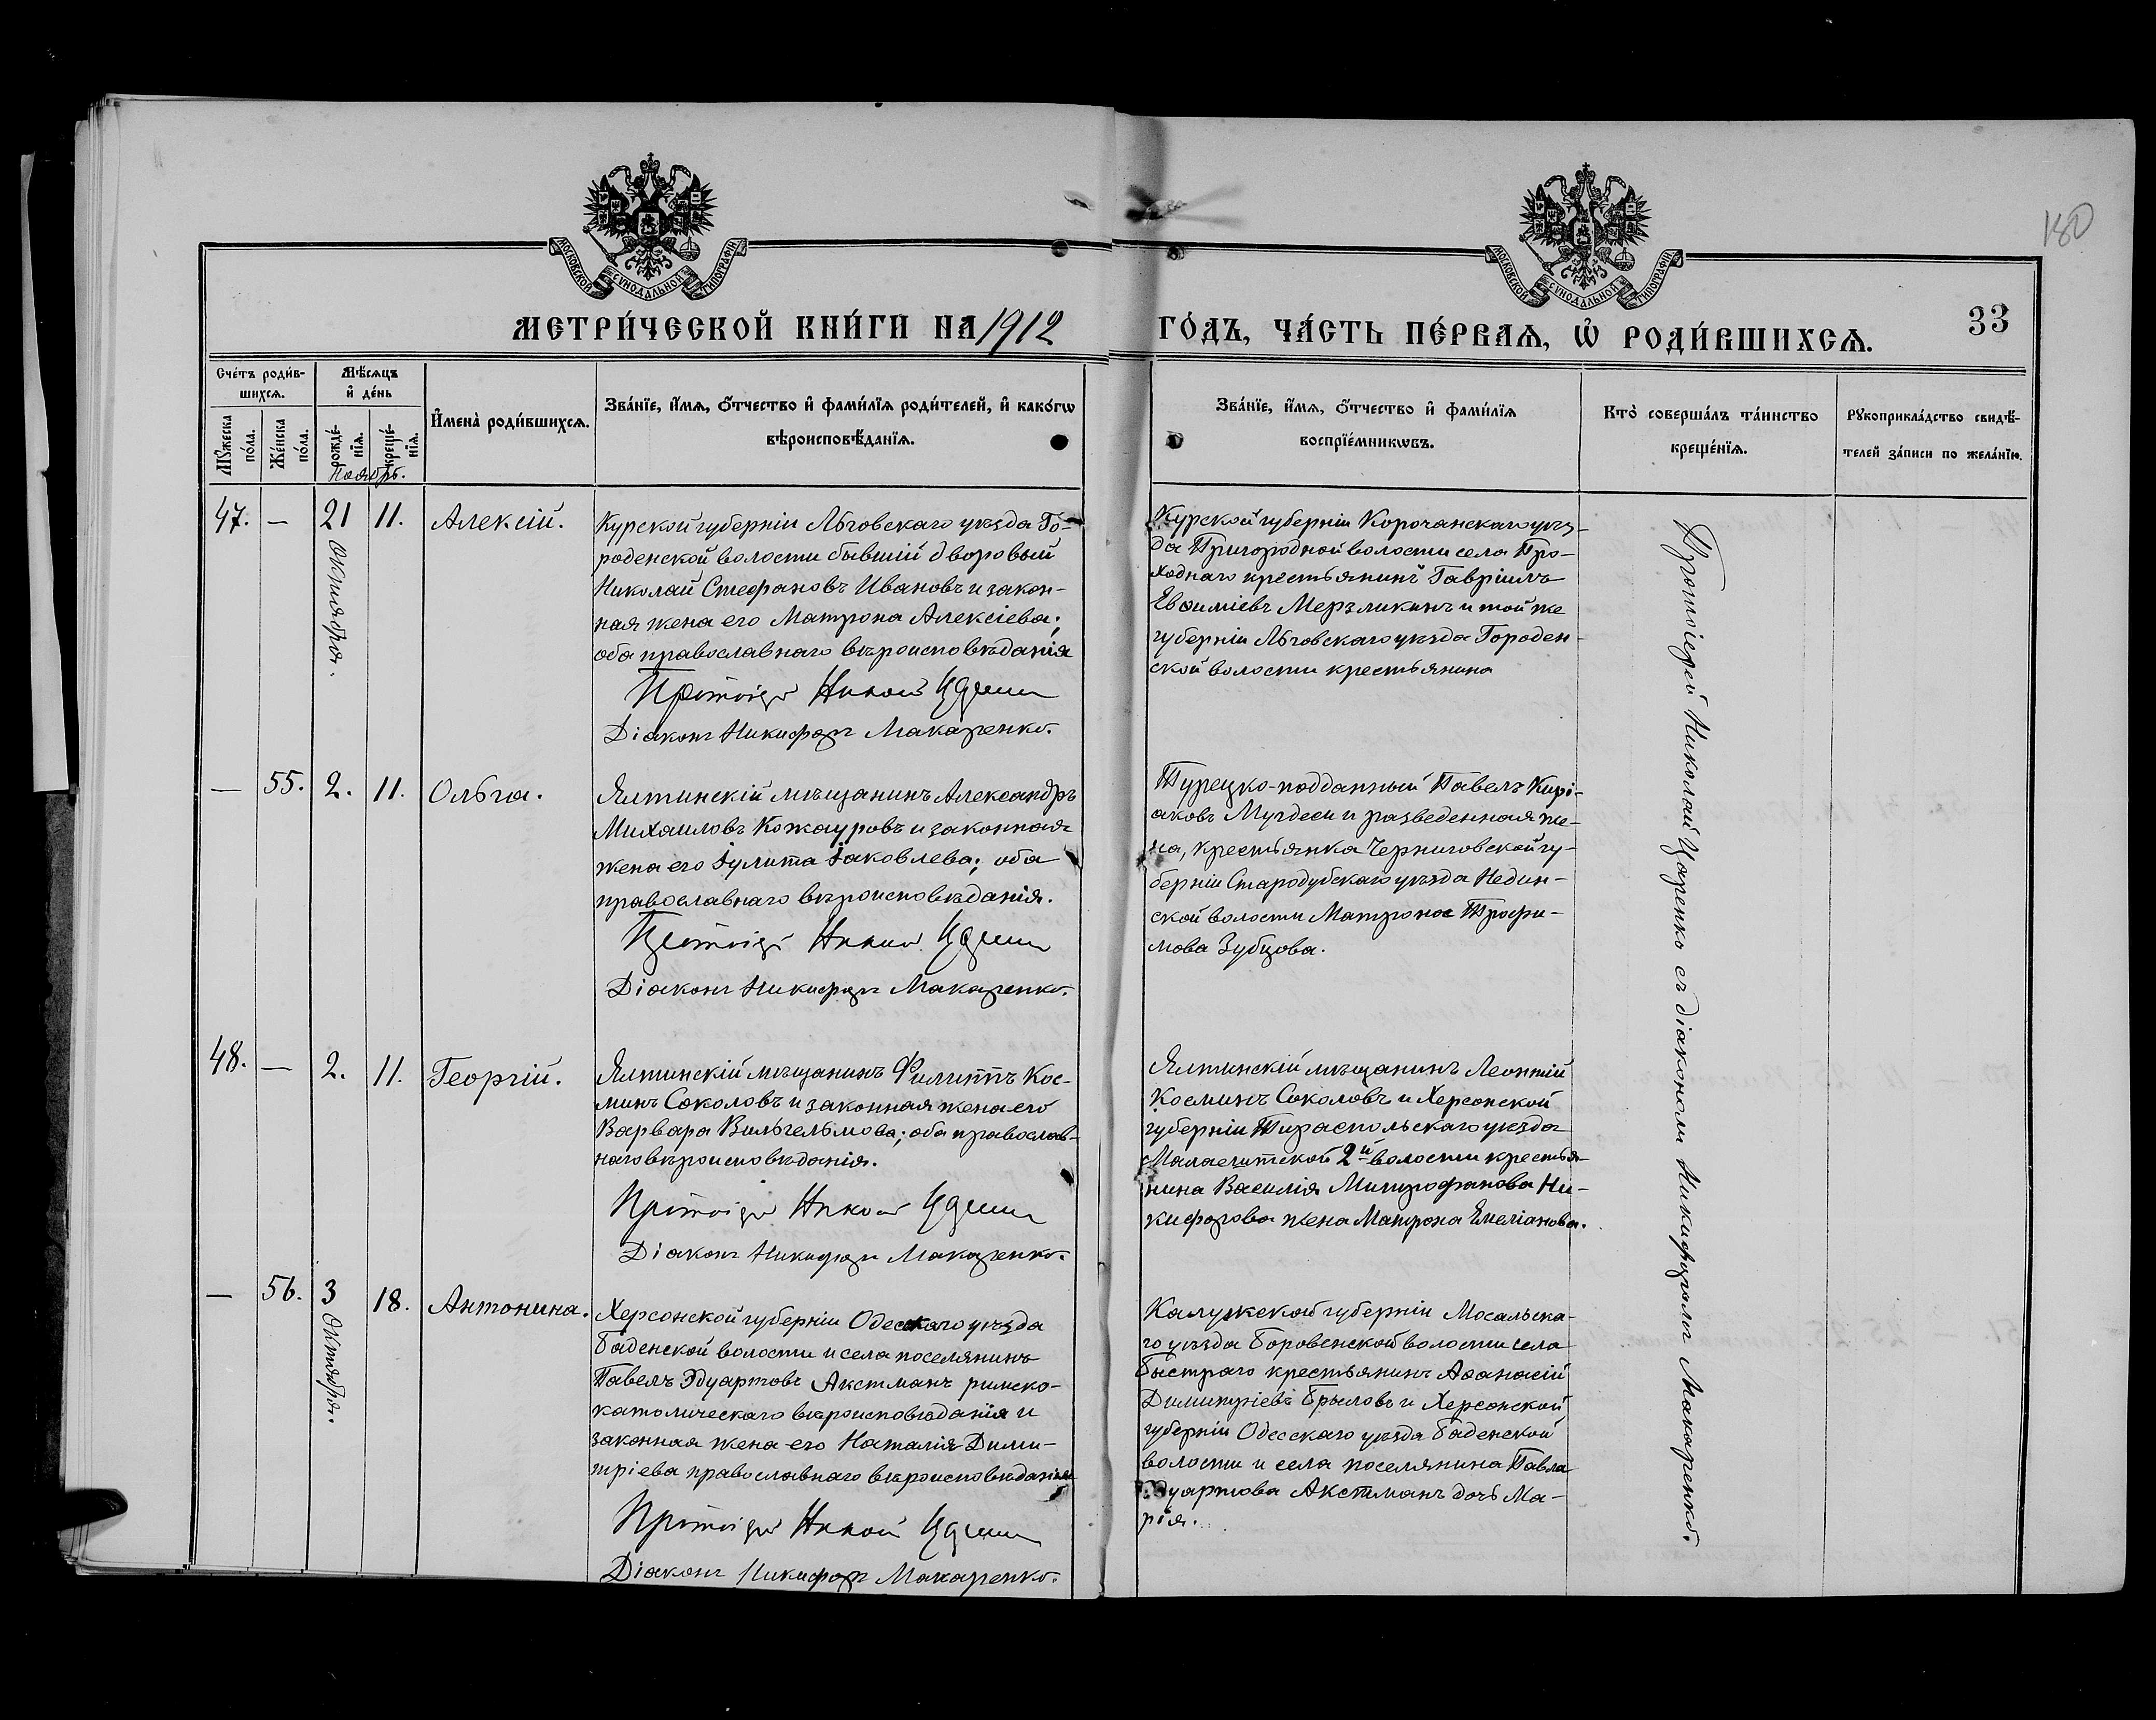 180
МОСКОВСКОЙ СѴНОДАЛЬНОЙ ТИПОГРАФІИ
МОСКОВСКОЙ СѴНОДАЛЬНОЙ ТИПОГРАФІИ
МЕТРИ́ЧЕСКОЙ КНИ́ГИ НА 1912
ГО́ДЪ, ЧА́СТЬ ПЕ́РВАѦ, Ѡ҆ РОДИ́ВШИХСѦ.
33
Сче́тъ роди́в-
шихсѧ.
Мѣ́сѧцъ
и҆ де́нь
Мꙋ́жеска
по́ла.
Же́нска
по́ла.
рожде́-
нїѧ.
креще́-
нїѧ.
Ноябрь.
И҆мена̀ роди́вшихсѧ.
Зва́нїе, и҆́мѧ, ѻ҆́тчество и҆ фами́лїѧ роди́телей, и҆ како́гѡ
вѣроисповѣ́данїѧ.
Зва́нїе, и҆́мѧ, ѻ҆́тчество и҆ фами́лїѧ
воспрїе́мникѡвъ.
Кто̀ соверша́лъ та́инство
креще́нїѧ.
Рꙋкоприкла́дство свидѣ́-
телей за́писи по жела́нїю.
47. — 21 11. Алексій.
Октября.
Курской губерніи Льговскаго уѣзда Го-
роденской волости бывшій дворовый
Николай Стефановъ Ивановъ и закон-
ная жена его Матрона Алексіева;
оба православнаго вѣроисповѣданія
Протоіерей Николай Царенко
Діаконъ Никифоръ Макаренко.
Курской губерніи Корочанскаго уѣз-
да Пригородной волости села Про-
ходнаго крестьянинъ Гавріилъ
Евѳиміевъ Мерзликинъ и той же
губерніи Льговскаго уѣзда Городен-
ской волости крестьянина
— 55. 2. 11. Ольга.
Ялтинскій мѣщанинъ Александръ
Михаиловъ Кожауровъ и законная
жена его Іулита Іаковлева; оба
православнаго вѣроисповѣданія.
Протоіерей Николай Царенко
Діаконъ Никифоръ Макаренко.
Турецко-подданный Павелъ Кирі-
аковъ Мугдеси и разведенная же-
на, крестьянка Черниговской гу-
берніи Стародубскаго уѣзда
ской волости Матрона Трофи-
мова Зубцова.
48. — 2. 11. Георгій.
Ялтинскій мѣщанинъ Филиппъ Кос-
минъ Соколовъ и законная жена его
Варвара Вильгельмова; оба православ-
наго вѣроисповѣданія.
Протоіерей Николай Царенко
Діаконъ Никифоръ Макаренко.
Ялтинскій мѣщанинъ Леонтій
Косминъ Соколовъ и Херсонской
губерніи Тираспольскаго уѣзда
2й волости крестья-
нина Василія Митрофанова Ни-
кифорова жена Матрона Емеліанова.
— 56. 3 18. Антонина.
Октября.
Херсонской губерніи Одесскаго уѣзда
Баденской волости и села поселянинъ
Павелъ Эдуартовъ Акстманъ римско-
католическаго вѣроисповѣданія и
законная жена его Наталія Дими-
тріева православнаго вѣроисповѣданія
Протоіерей Николай Царенко
Діаконъ Никифоръ Макаренко.
Калужской губерніи Мосальска-
го уѣзда Боровенской волости села
Быстраго крестьянинъ Аѳанасій
Димитріевъ Брыловъ и Херсонской
губерніи Одесскаго уѣзда Баденской
волости и села поселянина Павла
Эдуартова Акстманъ дочь Ма-
рія.
Протоіерей Николай Царенко съ діакономъ Никифоромъ Макаренко.